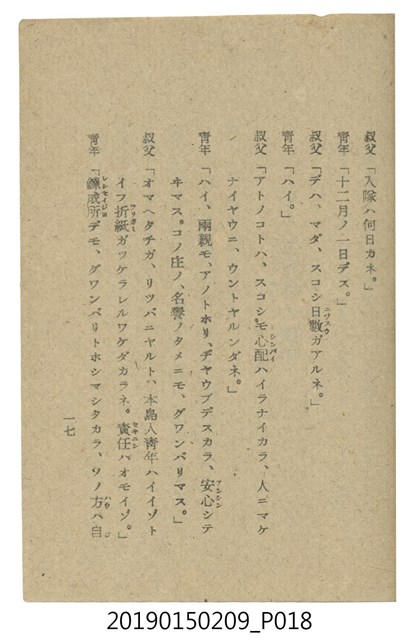 叔父「入隊ハ何日カネ。」
青年「十二月ノ一日デス。」
叔父「デハ、マダ、スコシ日數ガアルネ。」
ニツスウ
青年「ハイ。」
叔父「アトノコトハ、スコシモ心配ハイラナイカラ、人ニマケ
シンパイ
ナイヤウニ、ウントヤルンダネ。」
青年「ハイ、兩親モ、アノトホリ、ヂヤウブデスカラ、安心シテ
アンシン
ヰマス。コノ庄ノ、名譽ノタメニモ、グワンバリマス。」
叔父「オマヘタチガ、リツパニヤルト、本島人青年ハイイゾト
イフ折紙ガツケラレルワケダカラネ。責任ハオモイゾ。」
ヲリガミ
セキニン
青年「鍊成所デモ、グワンバリトホシマシタカラ、ソノ方ハ自
レンセイジヨ
ハウ
ジ
一七
20190150209_P018